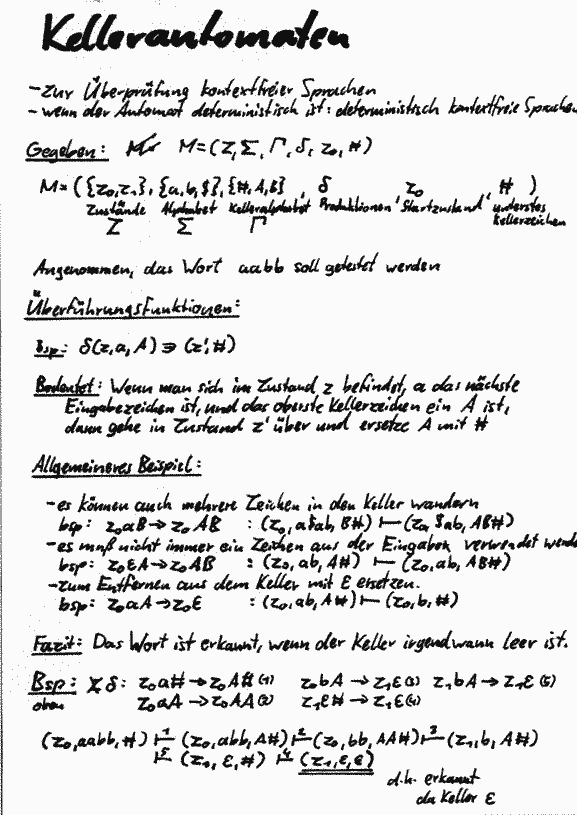 Kellerautomaten
- Zur Überprüfung kontextfreier Sprachen
- wenn der Automat deterministisch ist: deterministisch kontextfreie Sprachen
Gegeben: M=(Z,Σ,Γ,δ,z₀,#)
M=({z₀,z₁},{a,b,$},{#,A,B}, δ, z₀, #)
Zustände Alphabet Kelleralphabet Produktionen Startzustand unterstes
Kellerzeichen
Z Σ Γ
Angenommen, das Wort aabb soll getestet werden
Überführungsfunktionen:
Bsp: δ(z,a,A) ∋ (z',#)
Bedeutet: Wenn man sich im Zustand z befindet, a das nächste
Eingabezeichen ist, und das oberste Kellerzeichen ein A ist,
dann gehe in Zustand z' über und ersetze A mit #
Allgemeineres Beispiel:
- es können auch mehrere Zeichen in den Keller wandern
bsp: z₀aB → z₀AB : (z₀,a$ab,B#) ⊢ (z₀,$ab,AB#)
- es muß nicht immer ein Zeichen aus der Eingabe verwendet werde
bsp: z₀εA → z₀AB : (z₀,ab,A#) ⊢ (z₀,ab,AB#)
- zum Entfernen aus dem Keller mit ε ersetzen.
bsp: z₀aA → z₀ε : (z₀,ab,A#) ⊢ (z₀,b,#)
Fazit: Das Wort ist erkannt, wenn der Keller irgendwann leer ist.
Bsp: δ: z₀a# → z₀A# (1) z₀bA → z₁ε (3) z₁bA → z₁ε (5)
oben z₀aA → z₀AA (2) z₁ε# → z₁ε (4)
(z₀,aabb,#) ⊢¹ (z₀,abb,A#) ⊢² (z₀,bb,AA#) ⊢³ (z₁,b,A#)
⊢⁵ (z₁,ε,#) ⊢⁴ (z₁,ε,ε)
d.h. erkannt
da Keller ε